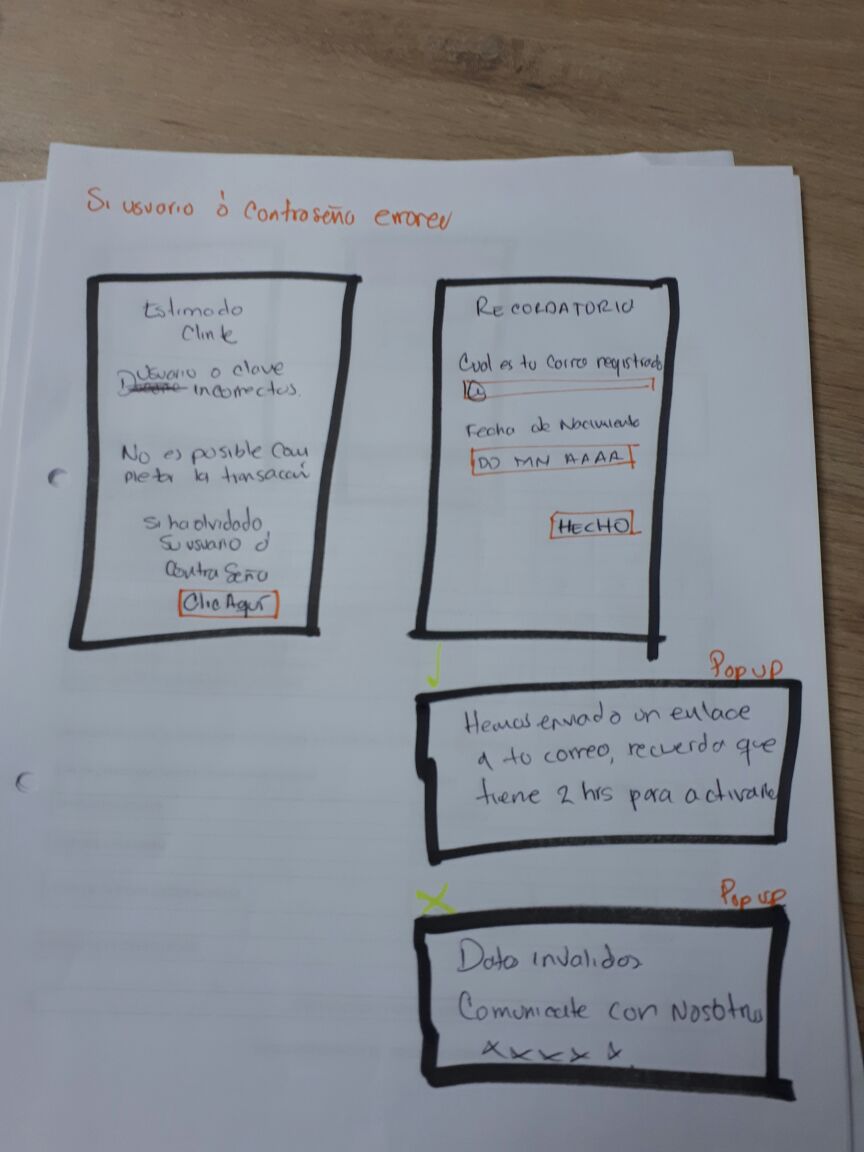 Si usuario ó contraseña errores
Estimado
Clinte
Usuario o clave
incorrectos.
No es posible com
pletar la transacai
Si ha olvidado
su usuario ó
contraseña
Clic Aquí
RECORDATORIO
Cual es tu correo registrado
Fecha de Nacimiento
DD MM AAAA
HECHO
Pop up
Hemos enviado un enlace
a tu correo, recuerda que
tiene 2 hrs para activarle
Pop up
Datos invalidos
Comunicate con Nosotros
xxxx x